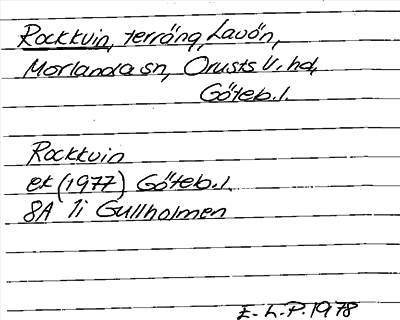 Rockkvin, terräng, Lavön,
Morlanda sn, Orusts V. hd,
Göteb. l.
Rockkvin
ek (1977) Göteb. l.
8A 7i Gullholmen
E. L. P. 1978